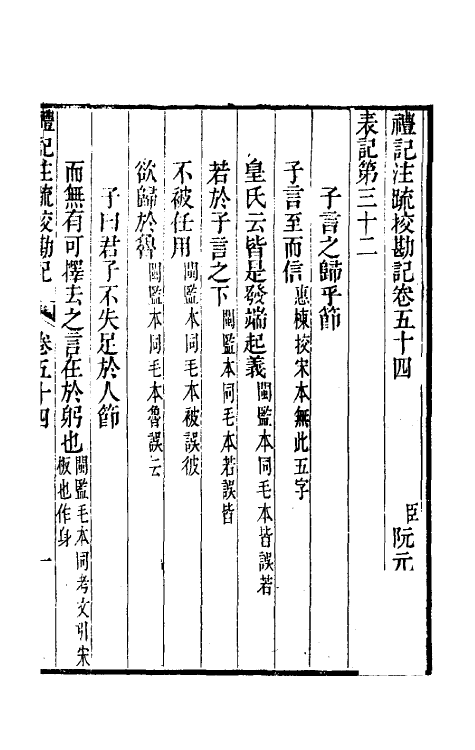 禮記注疏校勘記卷五十四
臣阮元
表記第三十二
子言之歸乎節
子言至而信惠棟挍宋本無此五字
皇氏云皆是發端起義閩監本同毛本皆誤若
若於子言之下閩監本同毛本若誤皆
不被任用閩監本同毛本被誤彼
欲歸於魯閩監本同毛本魯誤云
子曰君子不失足於人節
而無有可擇去之言在於躬也閩監毛本同考文引宋板也作身
禮記注疏校勘記
卷五十四
一